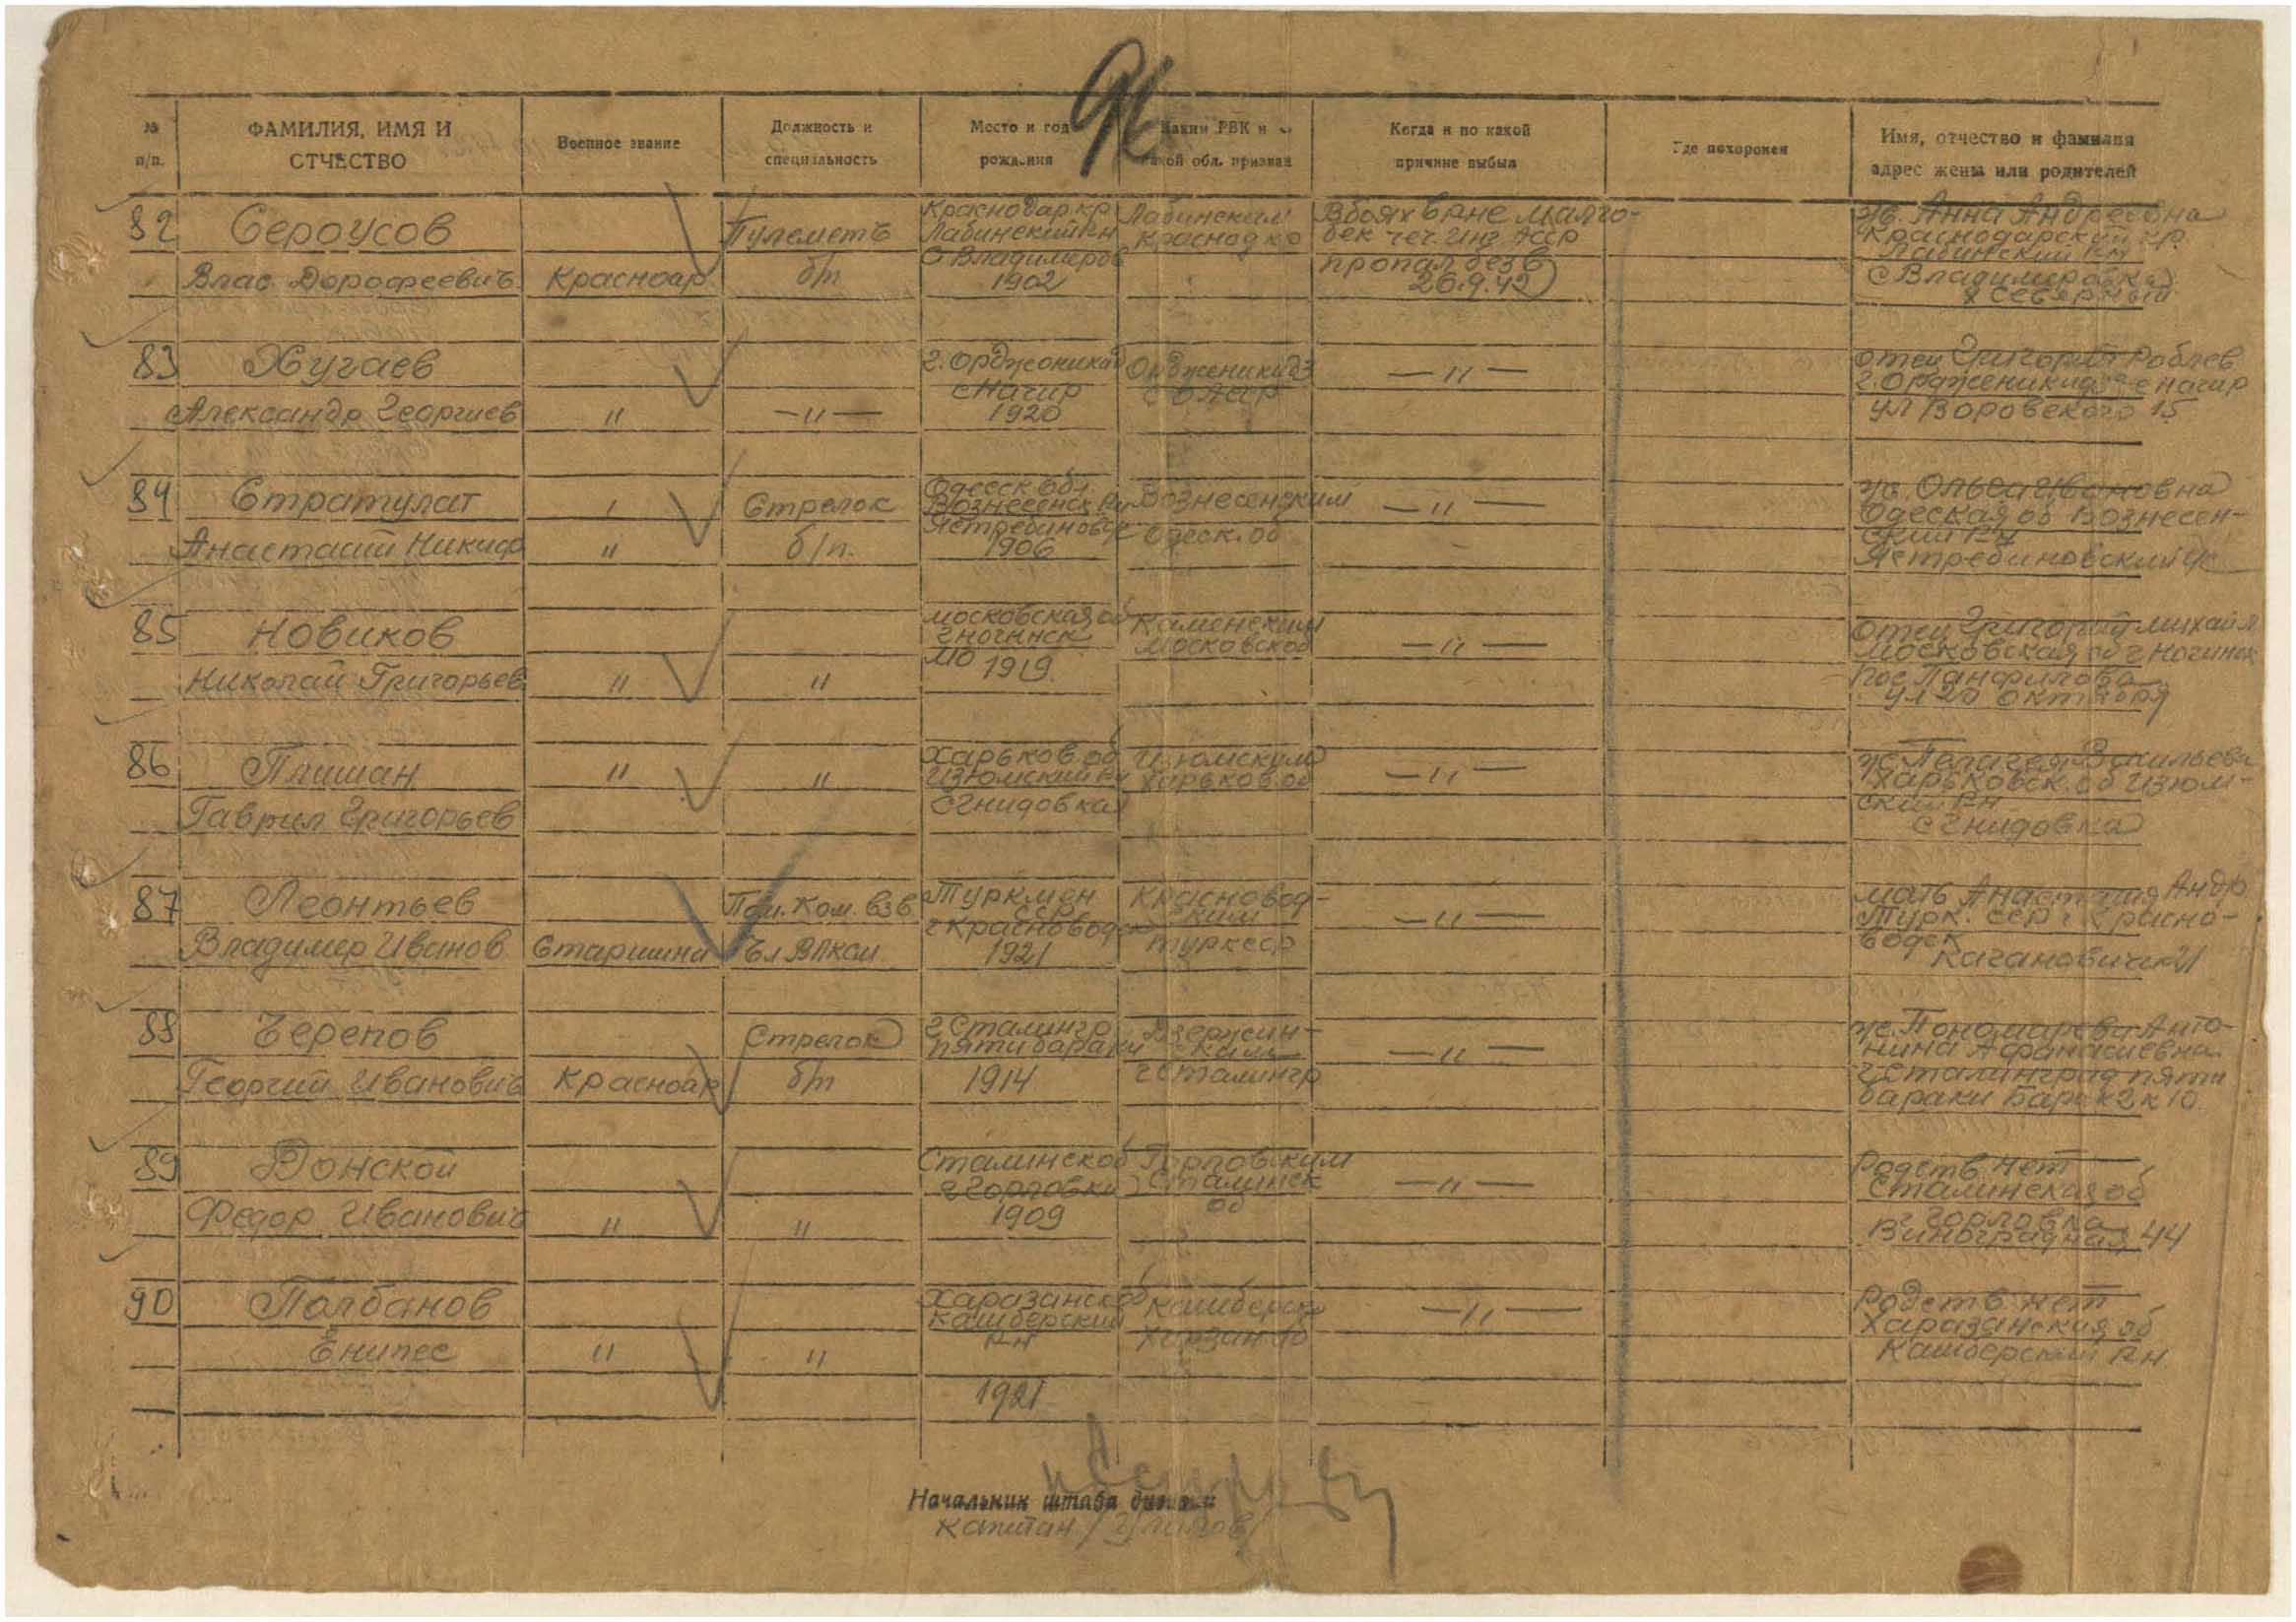 96
№ п/п.
ФАМИЛИЯ, ИМЯ И ОТЧЕСТВО
Военное звание
Должность и специальность
Место и год рождения
Каким РВК и какой обл. призван
Когда и по какой причине выбыл
Где похоронен
Имя, отчество и фамилия адрес жены или родителей
82
Сероусов
Влас Дорофеевич
Красноар
Пулеметч
б/п
Краснодар. кр
Лабинский рн
С Владимиров
1902
Лабинским
Краснод кр
В боях в рне Малго-
бек чеч. Инг АССР
пропал без в
26.9.42
ж. Анна Андреевна
Краснодарский кр.
Лабинский рн
с Владимировка
х Северный
83
Хугаев
Александр Георгиев
"
—"—
г. Орджоникид
с Ногир
1920
Орджоникидз
С О АССР
—"—
отец Григорий
г. Орджоникидзе с Ногир
ул Воровского 15
84
Стратулат
Анастасий Никиф
"
Стрелок
б/п.
Одесск обл.
Вознесенск рн
Ястребиновск
1906
Вознесенским
Одеск. об
—"—
ж. Ольга Ивановна
Одеская об Вознесен-
ский рн
Ястребиновский
85
Новиков
Николай Григорьев
"
"
Московская об
г Ногинск
МО 1919.
Каменским
Московской
—"—
отец Григорий Михайл
Московская об г Ногинск
пос Панфилова
ул 20 октября
86
Плишан
Гаврил Григорьев
"
"
Харьков. об
Изюмский рн
с Гнидовка
Изюмским
Харьков. об
—"—
ж. Пелагея Васильевн
Харьковск. об Изюм-
ский рн
с Гнидовка
87
Леонтьев
Владимир Иванов
Старшина
Пом. Ком. взв
Чл ВЛКСМ
Туркмен
ССР
г Красноводск
1921
Красновод-
ским
Турк ССР
—"—
мать Анастасия Андр
Турк. ССР г Красно-
водск
Кагановича 21
88
Черепов
Георгий Иванович
Красноар
Стрелок
б/п
г Сталингр
пяти бараки
1914
Дзержин-
ским
г Сталингр
—"—
ж. Пономарева Анто-
нина Афанасиевна.
г Сталинград пяти
бараки барак 2 к 10
89
Донской
Федор Иванович
"
"
Сталинск об
г Горловка
1909
Горловским
Сталинск
об
—"—
Родств нет
Сталинская об
г Горловка
Виноградная 44
90
Палбанов
Енипес
"
"
Харазанск об
Кашберский
рн
1921
Кашберск
—"—
Родств нет
Харазанская об
Кашберский рн
Начальник штаба
Капитан